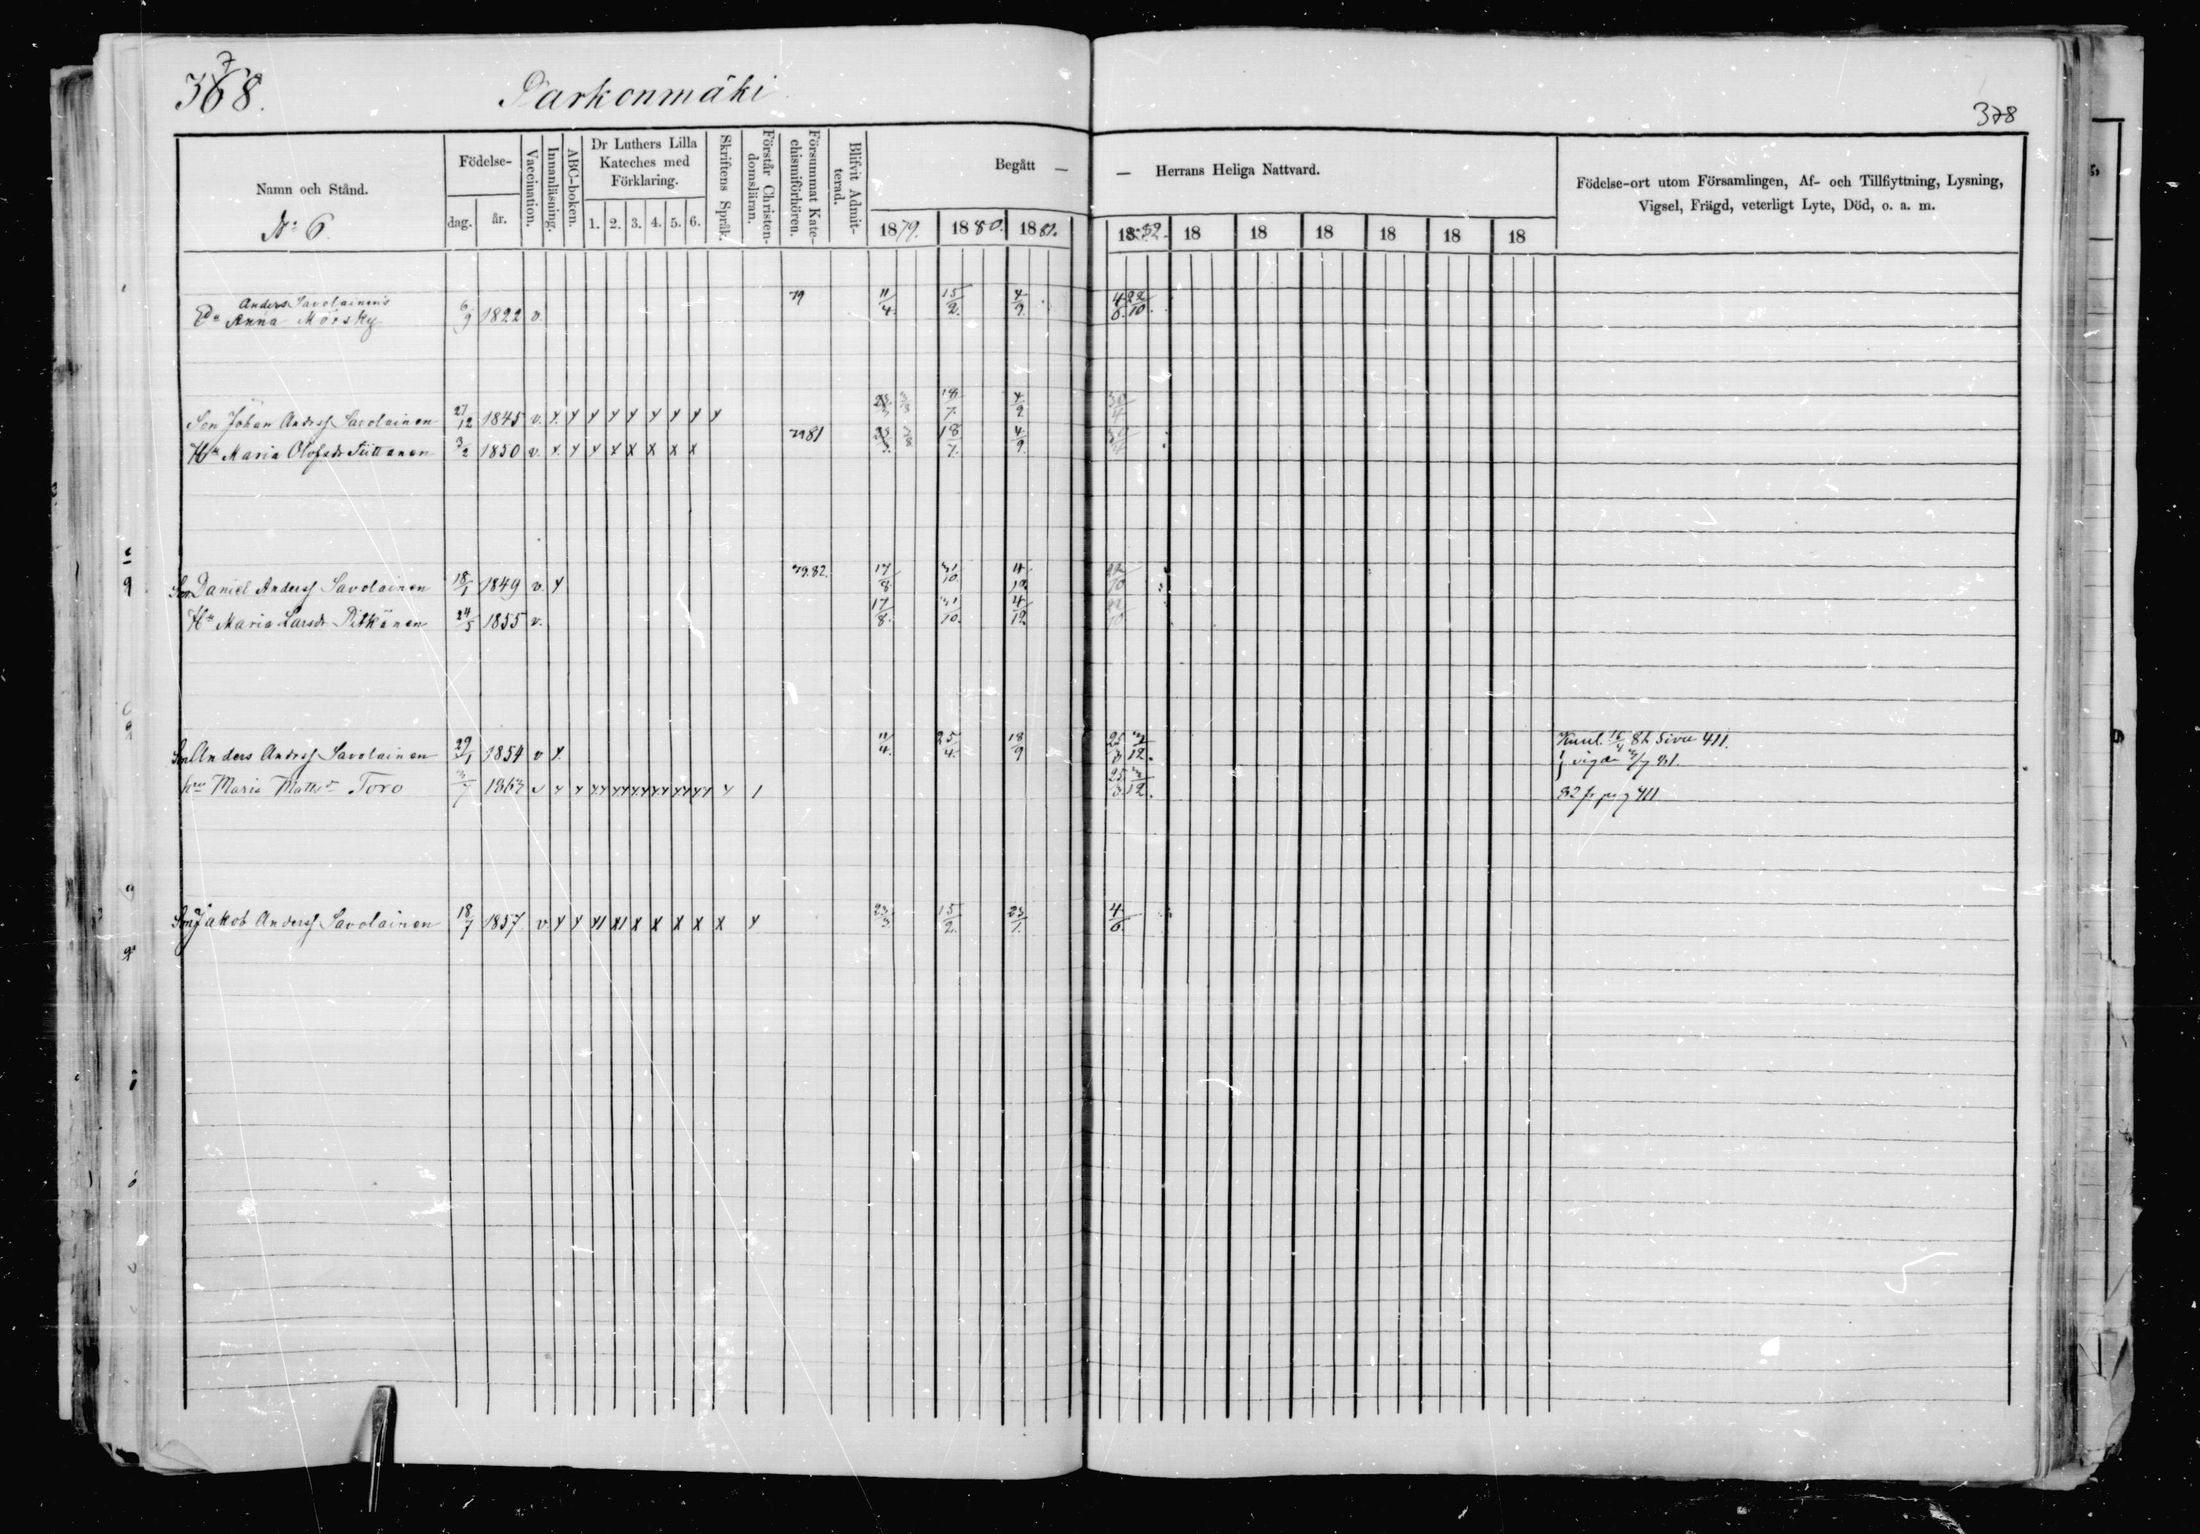 368.
7
Parkonmäki
378
Namn och Stånd.
No 6.
Födelse-
dag. år.
Vaccination.
Innanläsning.
ABC-boken.
Dr Luthers Lilla
Kateches med
Förklaring.
1. 2. 3. 4. 5. 6.
Skriftens Språk.
Förstår Christen-
domsläran.
Försummat Kate-
chismiförhören.
Blifvit Admit-
terad.
Begått —
— Herrans Heliga Nattvard.
1879. 1880. 1881. 1882. 18 18 18 18 18 18
Födelse-ort utom Församlingen, Af- och Tillflyttning, Lysning,
Vigsel, Frägd, veterligt Lyte, Död, o. a. m.
Anders Savolainen's
Ea Anna Mörsky 6/9 1822 v. 79 11/4 15/2. 4/9. 4/6. 22/10.
Son Johan Andersf Savolainen 27/12 1845 v. x. x x x x x x x x 23/3 3/8 18/7. 4/9 30/4
Hu Maria Olofsdr Tiittanen 3/2 1850 v. x. x x x x x x x 79 81 23/3. 3/8 18/7. 4/9. 30/4
Son Daniel Andersf Savolainen 18/1 1849 v. x 79. 82. 17/8. 31/10. 4/12. 22/10
Hu Maria Larsdr Pitkänen 24/5 1855 v. 17/8. 31/10. 4/12. 22/10
Son Anders Andersf Savolainen 29/1 1854 v x. 11/4. 25/4. 18/9 25/3 3/12. Kuul. 16/4 82 Sivu 411.
vigde 3/7 81.
Hu Maria Mattsdr Toro 3/7 1863 v x x xx xx xx xx xx x1 x 1 25/3 3/12. 82 fr pag 411
Son Jakob Andersf Savolainen 18/7 1857. v x x x1 x1 x x x x x x 23/3 15/2. 23/1. 4/6.